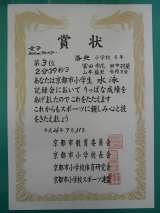 賞状
女子
洛央 小学校 6年
第3位
2分39秒3
あなたは京都市小学生 水泳
記録会において りっぱな成績を
あげましたので これをたたえます
これからもスポーツに親しみ 心と技
をきたえましょう
京都市教育委員会
京都市小学校長会
京都市小学校体育研究会
京都市小学校スポーツ連盟